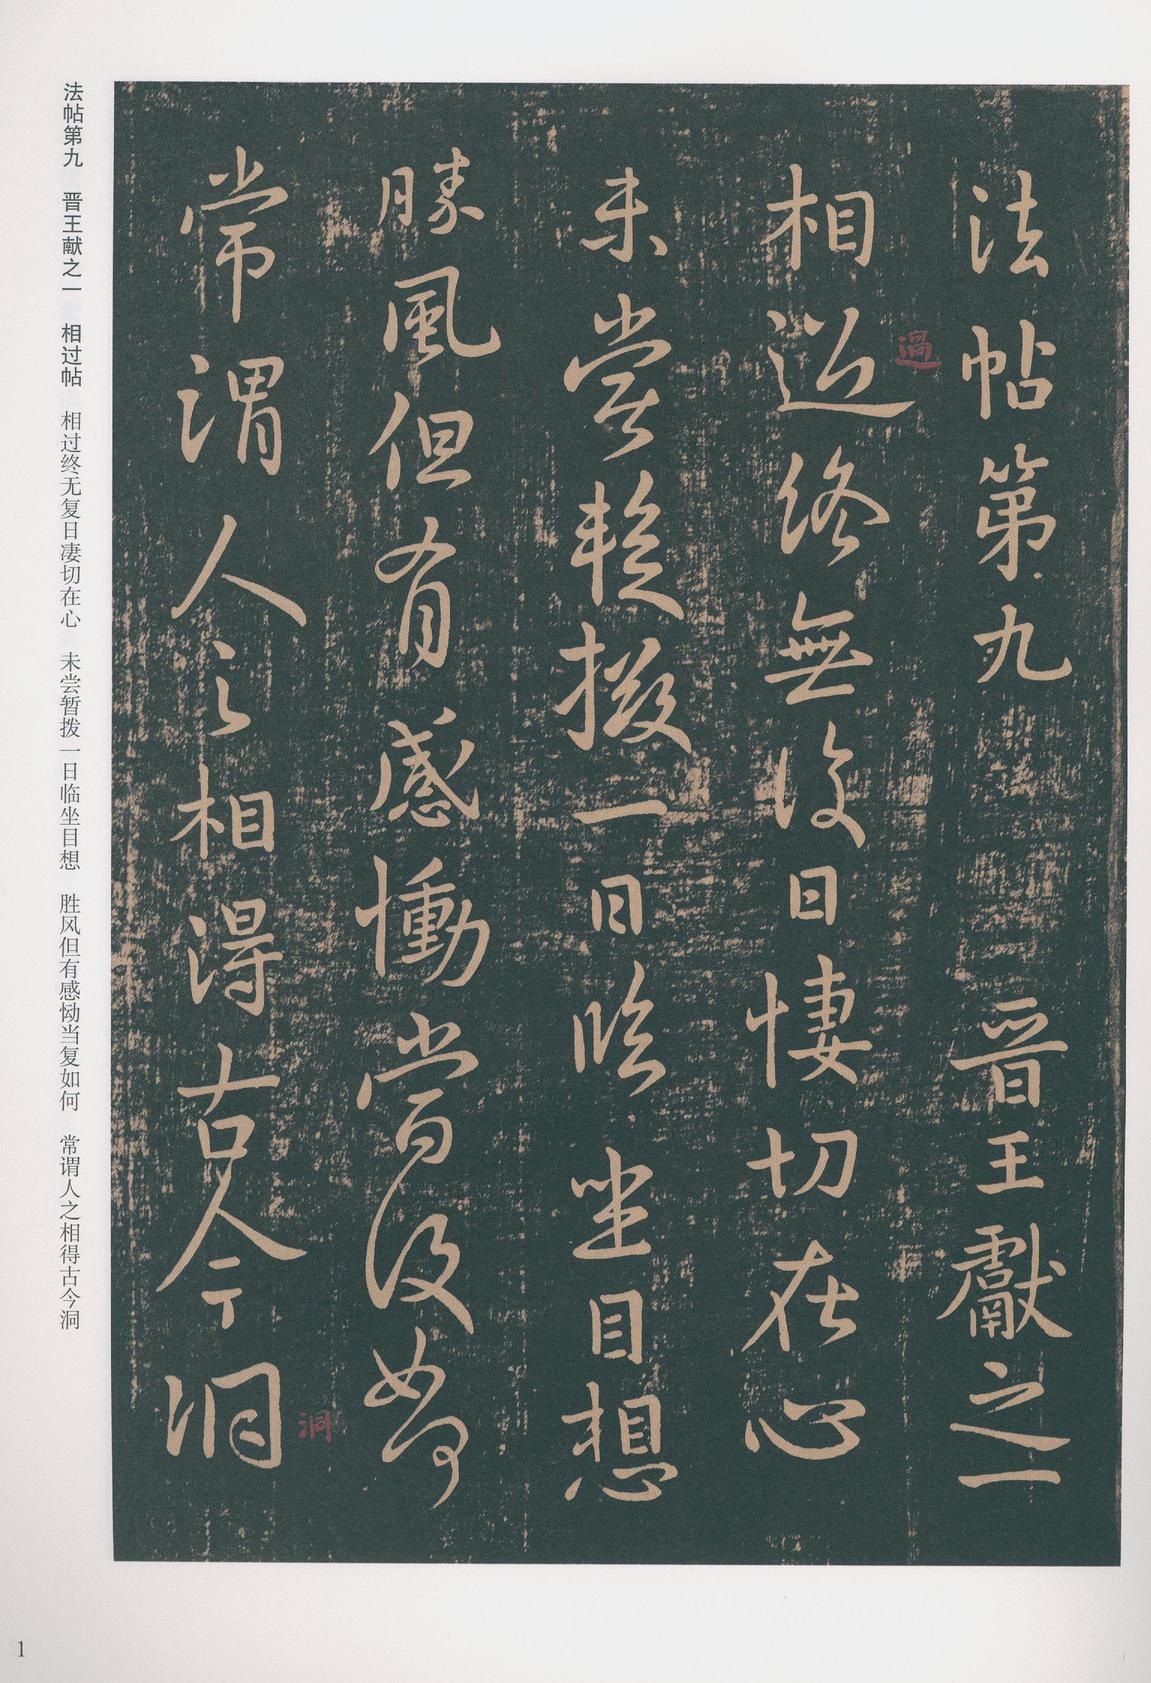 法帖第九 晋王獻之一
相過終無復日悽切在心
過
未嘗暫撥一日臨坐目想
勝風但有感慟當復如何
常謂人之相得古今洞
洞
法帖第九 晋王献之一 相过帖 相过终无复日凄切在心 未尝暂拨一日临坐目想 胜风但有感恸当复如何 常谓人之相得古今洞
1